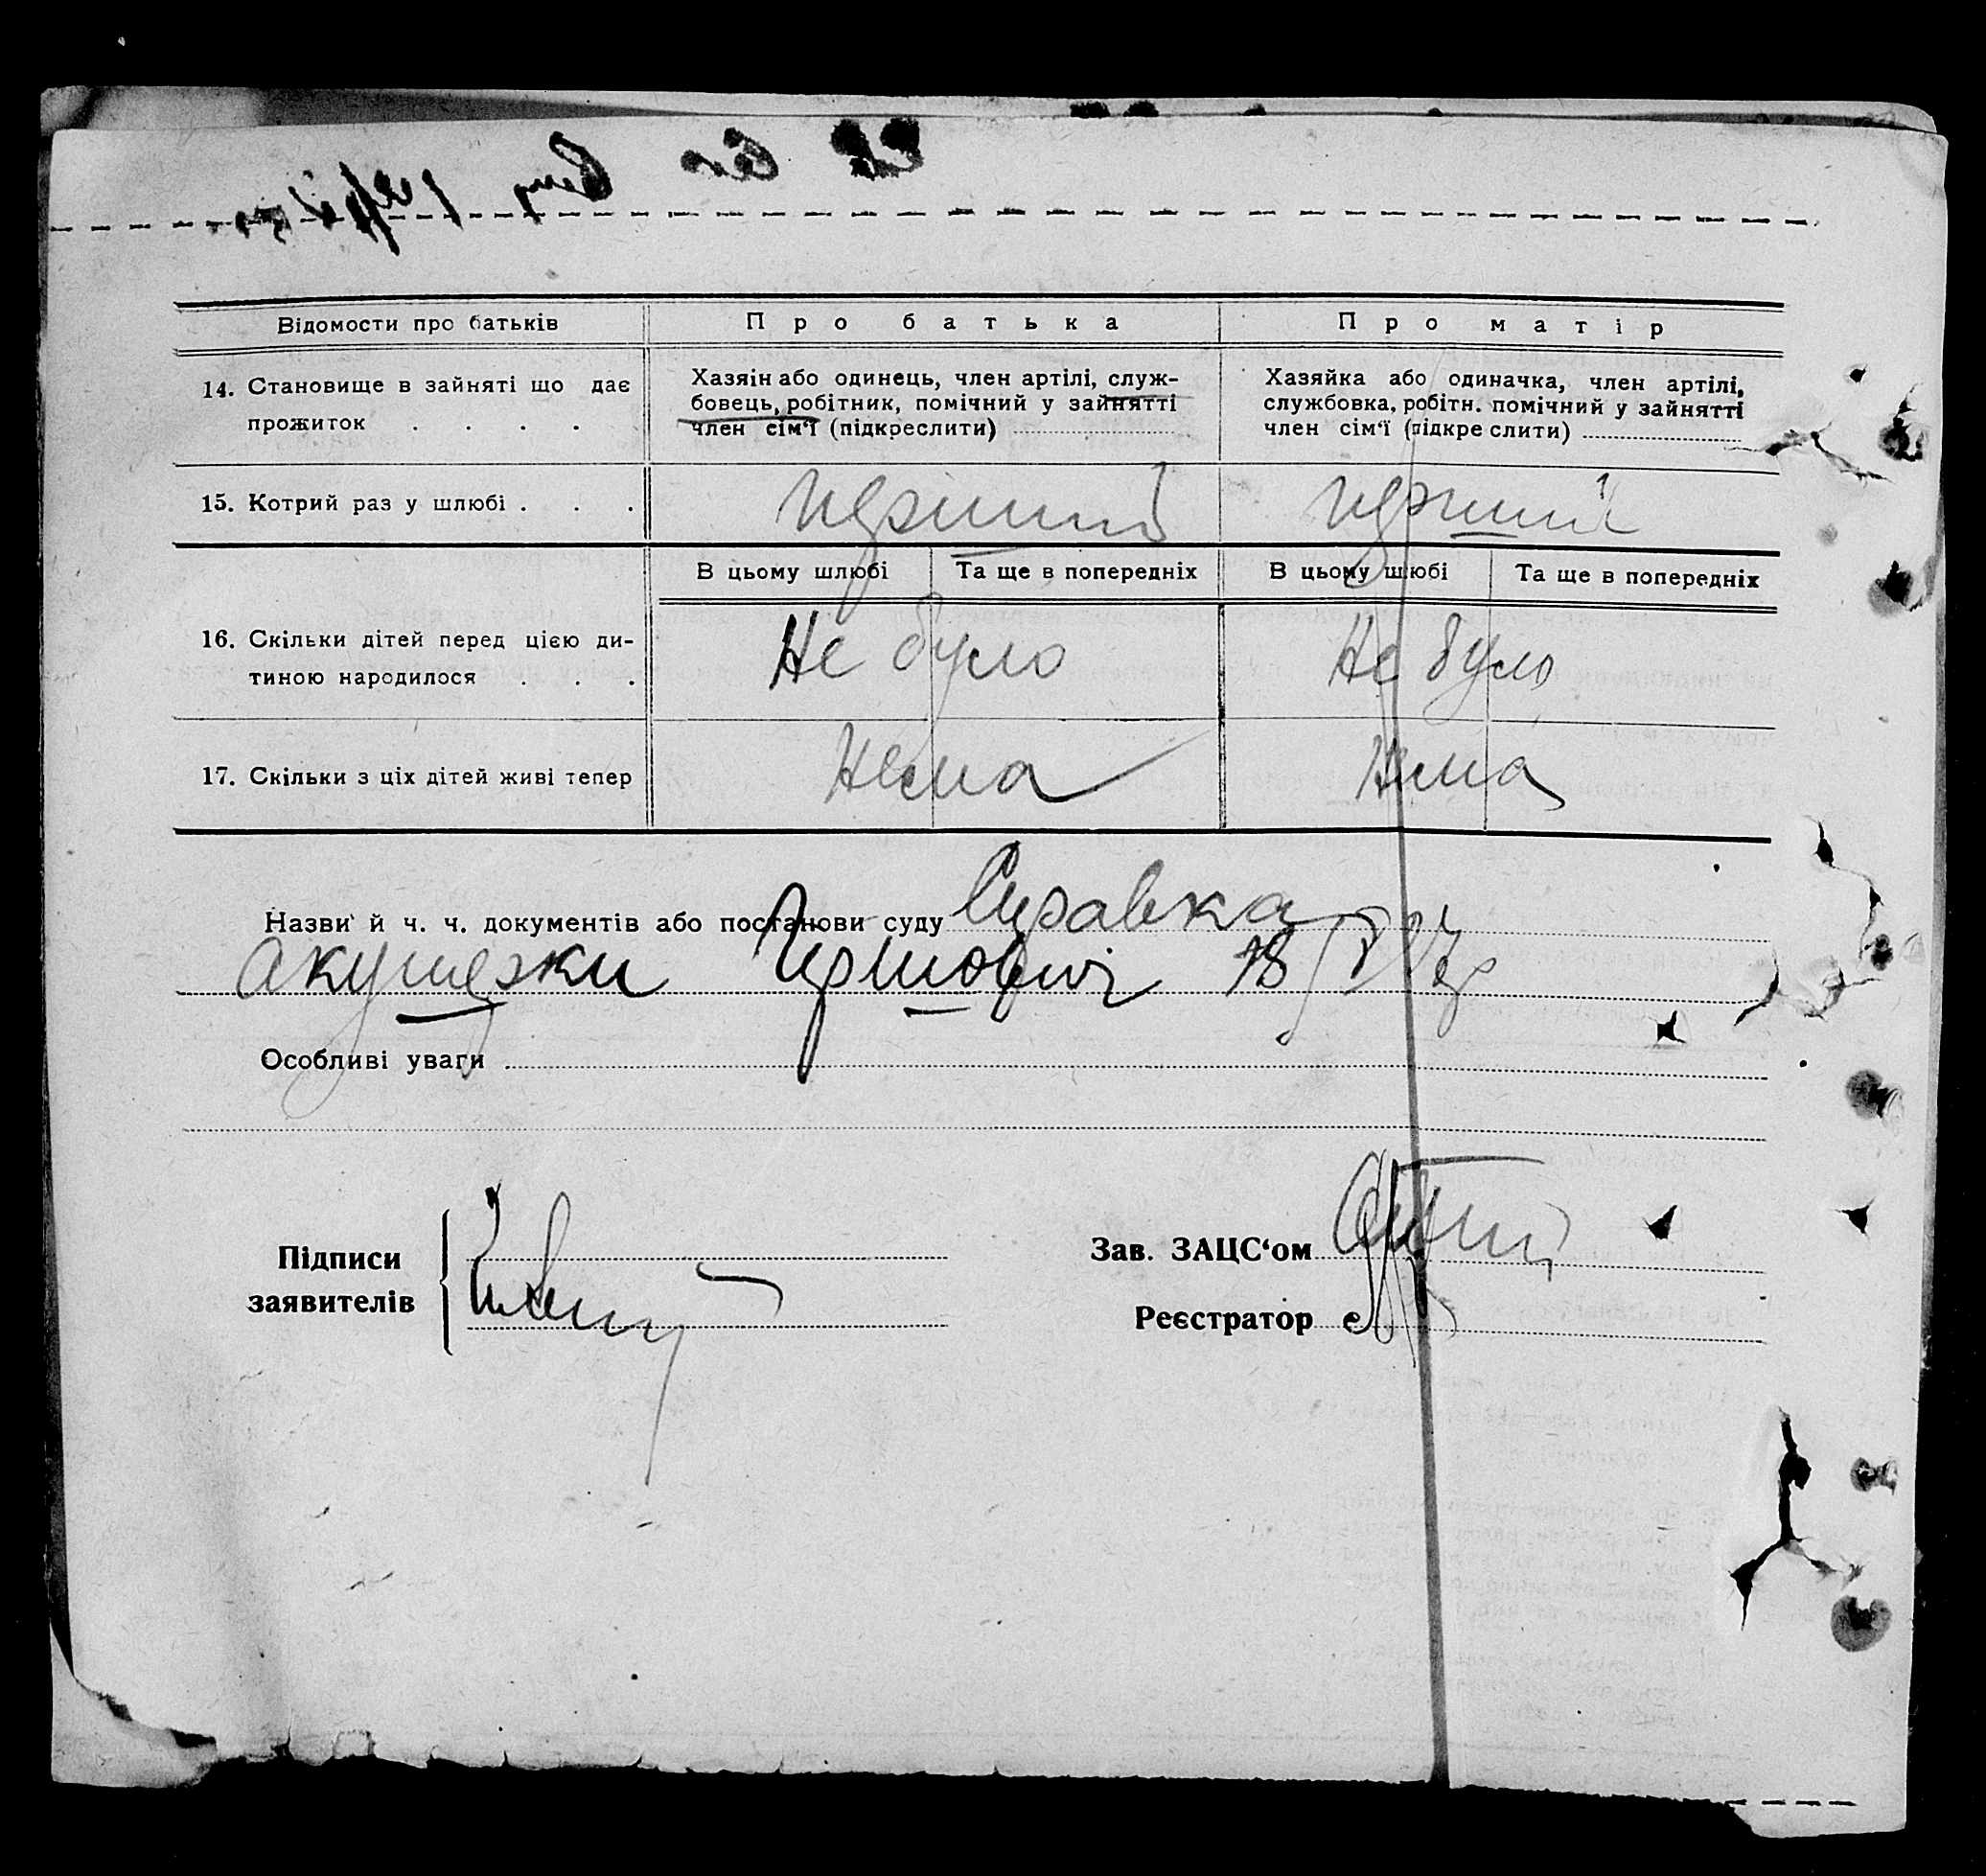 Відомости про батьків
Про батька
Про матір
14. Становище в зайняті що дає
прожиток . . . .
Хазяін або одинець, член артілі, служ-
бовець, робітник, помічний у зайнятті
член сім‘ї (підкреслити)
Хазяйка або одиначка, член артілі,
службовка, робітн. помічний у зайнятті
член сім‘ї (підкре слити)
15. Котрий раз у шлюбі . . .
перший
перший
В цьому шлюбі
Та ще в попередніх
В цьому шлюбі
Та ще в попередніх
16. Скільки дітей перед цією ди-
тиною народилося . . .
Не було
Не було
17. Скільки з ціх дітей живі тепер
Нема
Нема
Назви й ч. ч. документів або постанови суду Справка
акушерки 18/
Особливі уваги
Підписи
заявителів
Зав. ЗАЦС‘ом
Реєстратор